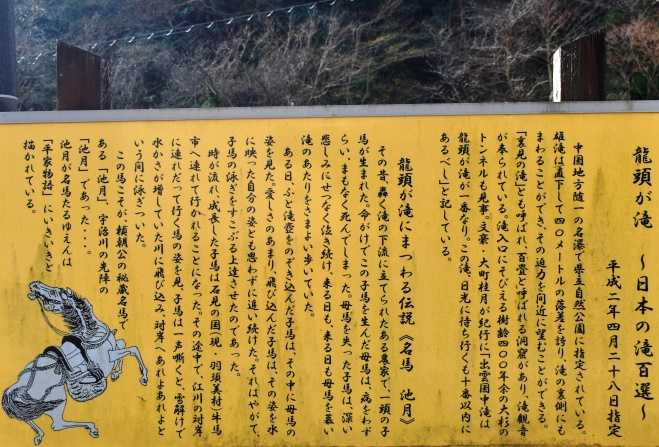 龍頭が滝 ～日本の滝百選～
平成二年四月二十八日指定
中国地方随一の名瀑で県立自然公園に指定されている。
雄滝は直下して四〇メートルの落差を誇り、滝の裏側にも
まわることができ、その迫力を間近に望むことができる。
「裏見の滝」とも呼ばれ、百畳と呼ばれる洞窟があり、滝観音
が奉られている。滝入口にそびえる樹齢四〇〇年余の大杉の
トンネルも見事。文豪・大町桂月が紀行に「出雲国中滝は
龍頭が滝が一番なり。この滝、日光に持ち行くも十番以内に
あるべし」と記している。
龍頭が滝にまつわる伝説《名馬 池月》
その昔、轟く滝の下流に立てられたある農家で、一頭の子
馬が生まれた。命がけでこの子馬を生んだ母馬は、病をわず
らい、まもなく死んでしまった。母馬を失った子馬は、深い
悲しみにせつなく泣き続け、来る日も、来る日も母馬を慕い
滝のあたりをさまよい歩いていた。
ある日、ふと滝壺をのぞき込んだ子馬は、その中に母馬の
姿を見た。愛しさのあまり、飛び込んだ子馬は、その姿を水
に映った自分の姿とも思わずに追い続けた。それはやがて、
子馬の泳ぎをすこぶる上達させたのであった。
時が流れ、成長した子馬は石見の国(現・羽須美村)牛馬
市へ連れて行かれることになった。その途中で、江川の対岸
に連れだって行く馬の姿を見、子馬は一声嘶くと、雪解けで
水かさが増していた川に飛び込み、対岸へあれよあれよと
いう間に泳ぎついた。
この馬こそが、頼朝公の秘蔵名馬で
ある「池月」、宇治川の先陣の
「池月」であった・・・。
池月が名馬たるゆえんは
「平家物語」にいきいきと
描かれている。